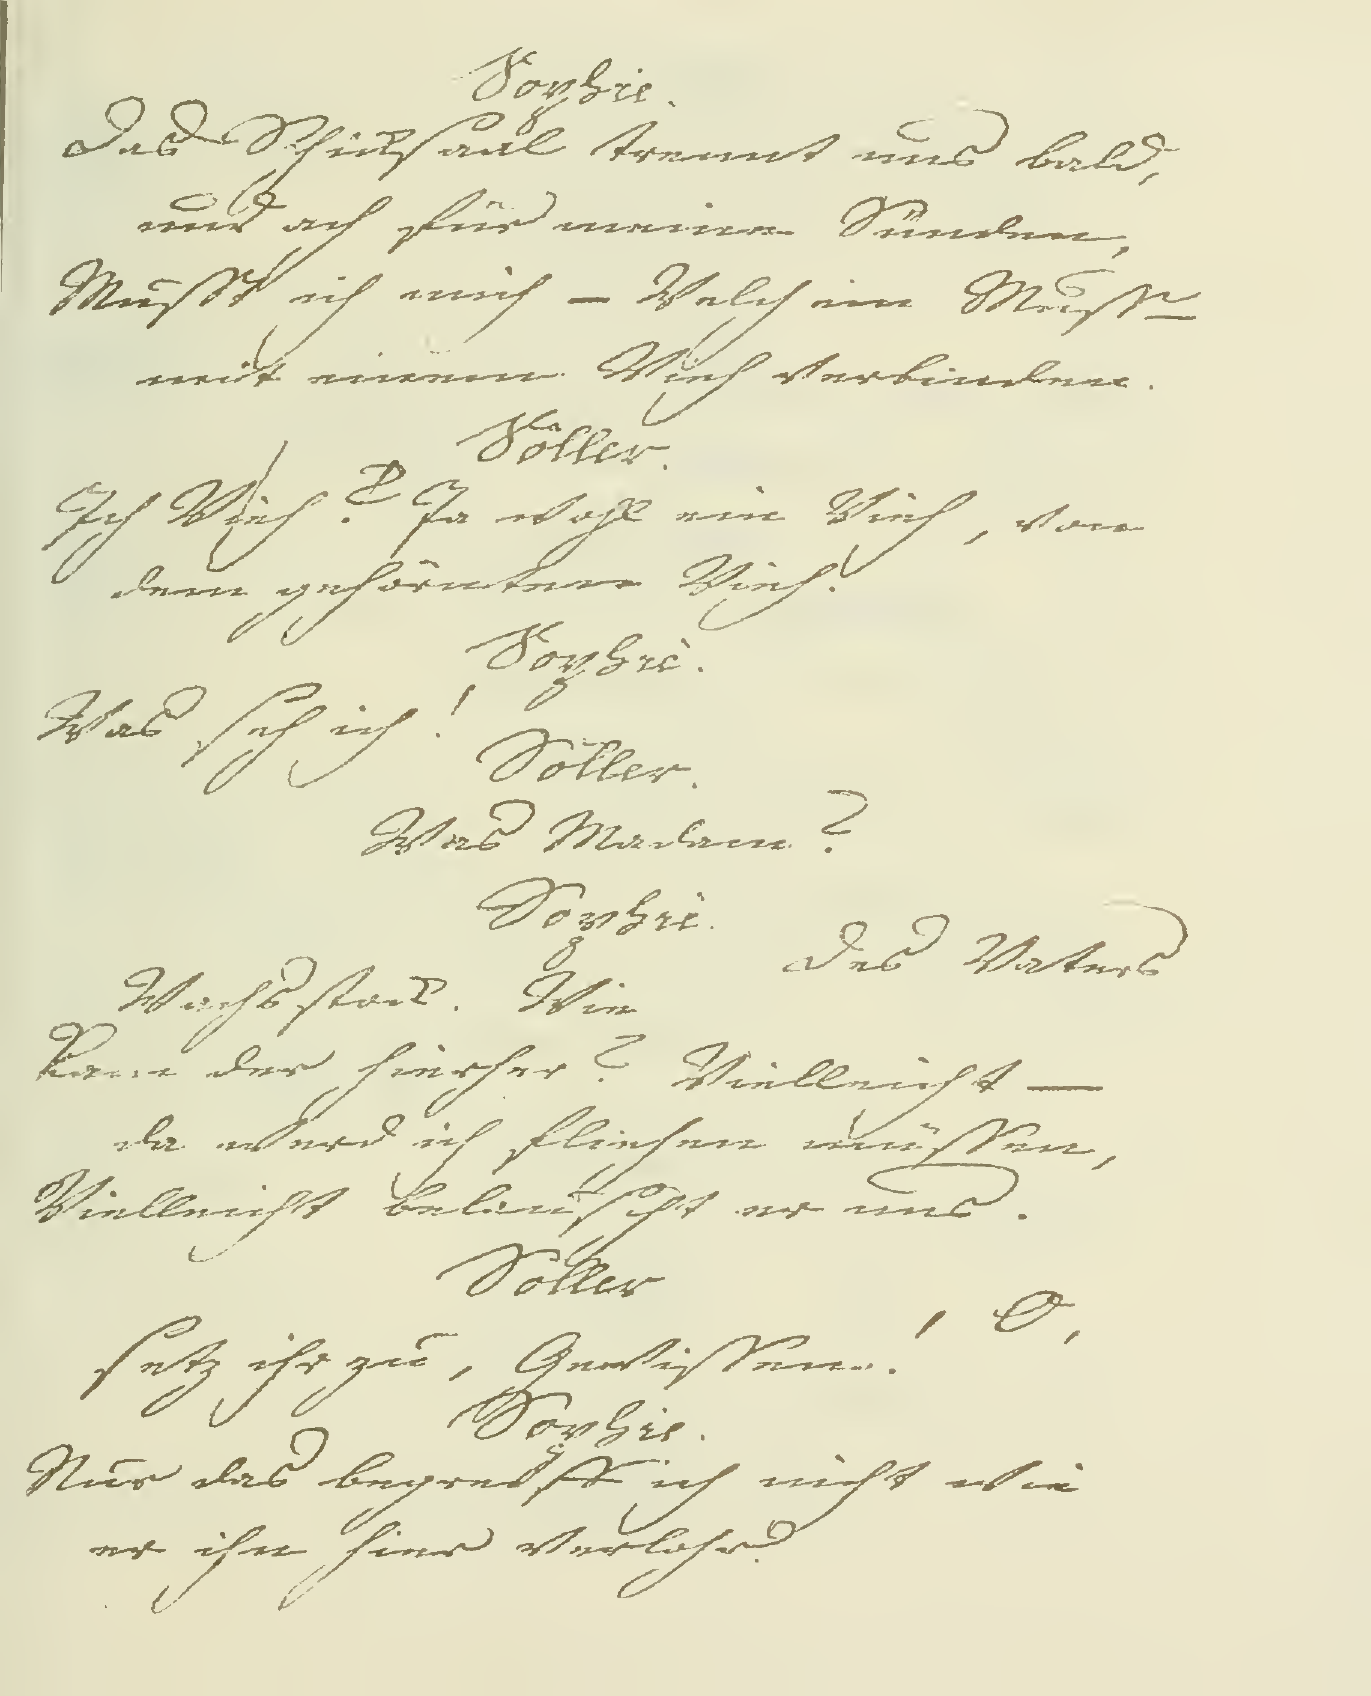 Sophie.
Das Schicksaal trennt uns bald,
und ach für meine Sünden,
Musst ich mich – Welch ein Muss –
mit einem Vieh verbinden.
Söller.
Ich Vieh? Ja wohl ein Vieh, von
dem gehörnten Vieh!
Sophie.
Was seh ich!
Söller.
Was Madam?
Sophie.
Des Vaters
Wachsstock. Wie
kam der hierher? Vielleicht —
da werd ich fliehen müssen,
Vielleicht belauscht er uns.
Söller
O,
setz ihr zu, Gewissen!
Sophie.
Nur das begreiff ich nicht wie
er ihn hier verlohr.